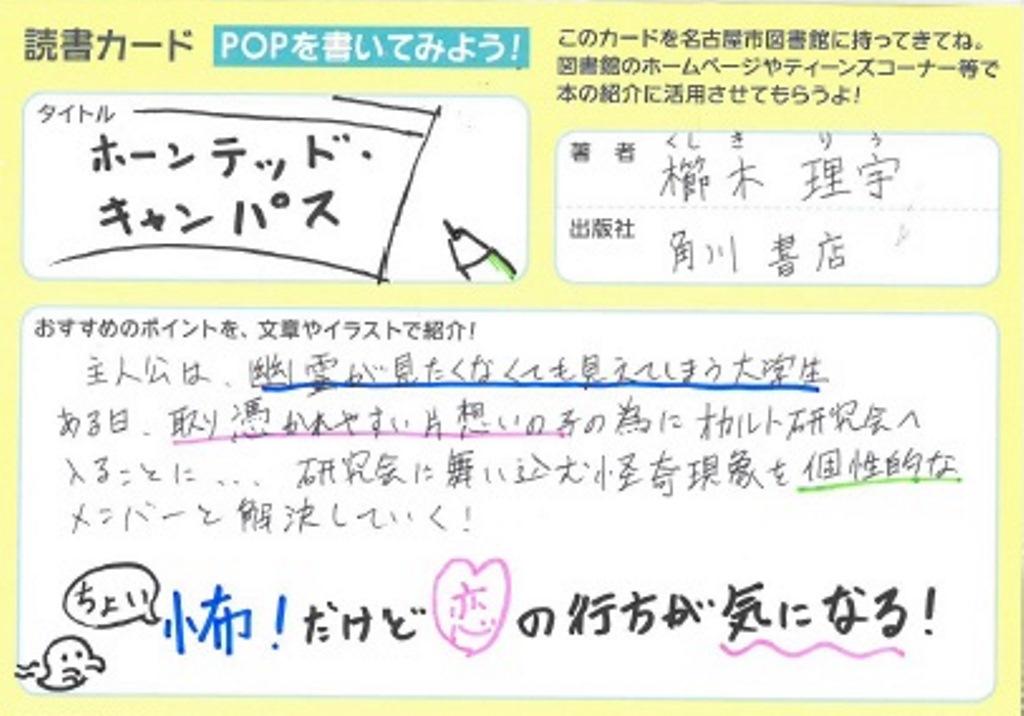 読書カード POPを書いてみよう!
このカードを名古屋市図書館に持ってきてね。
図書館のホームページやティーンズコーナー等で
本の紹介に活用させてもらうよ!
タイトル
ホーンテッド・
キャンパス
著者 くしき りう
櫛木 理宇
出版社 角川書店
おすすめのポイントを、文章やイラストで紹介!
主人公は、幽霊が見たくなくても見えてしまう大学生
ある日、取り憑かれやすい片想いの子の為にオカルト研究会へ
入ることに... 研究会に舞い込む怪奇現象を個性的な
メンバーと解決していく!
ちょい
怖!だけど恋の行方が気になる!